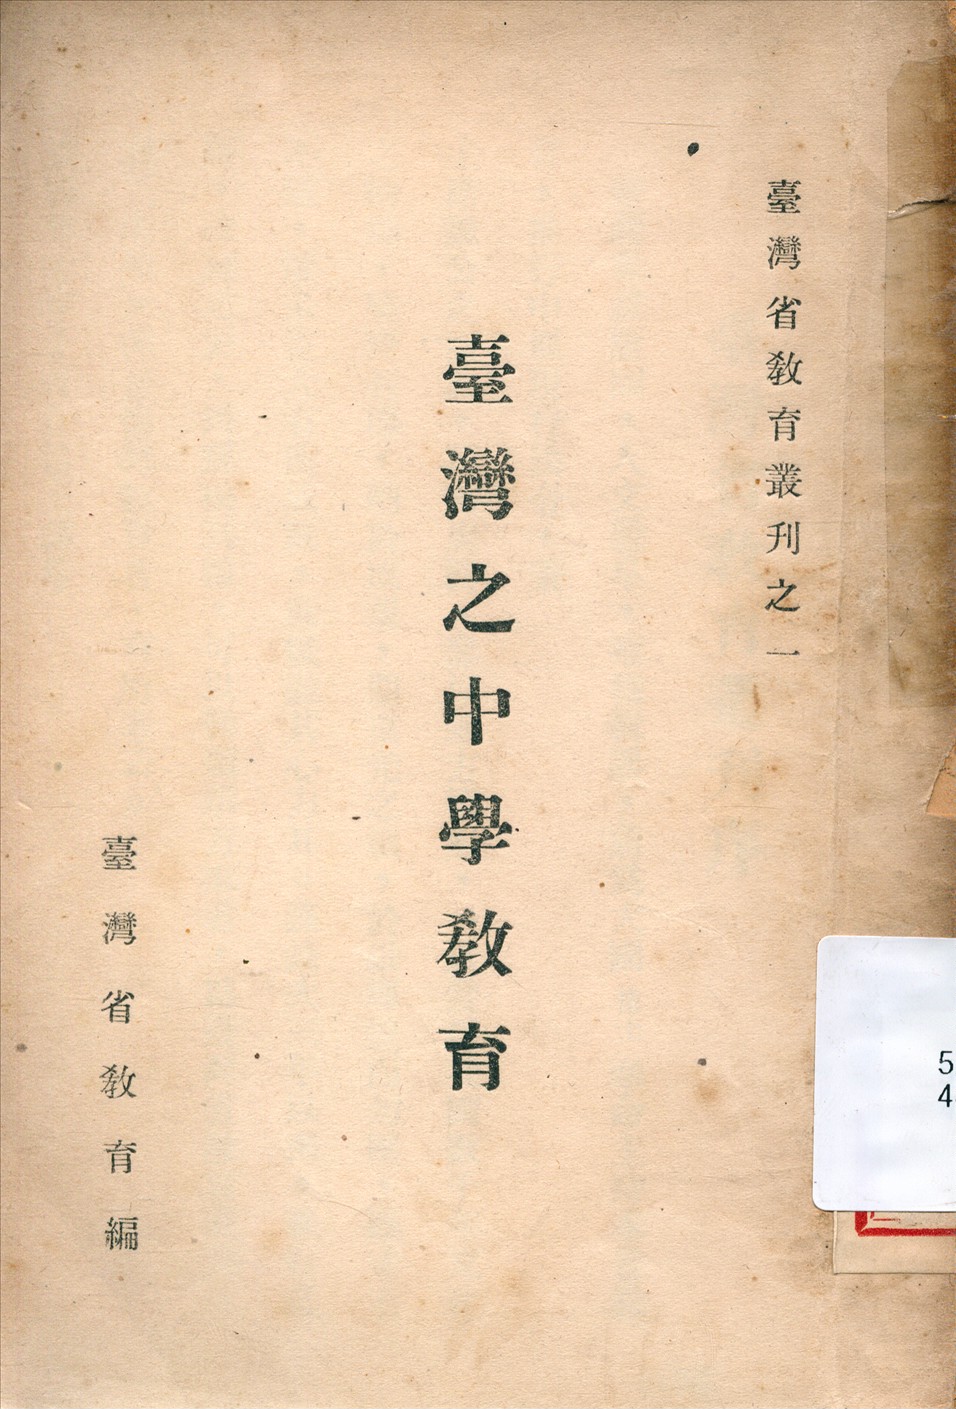 臺灣省教育叢刊之一
臺灣之中學教育
臺灣省教育編
5
4